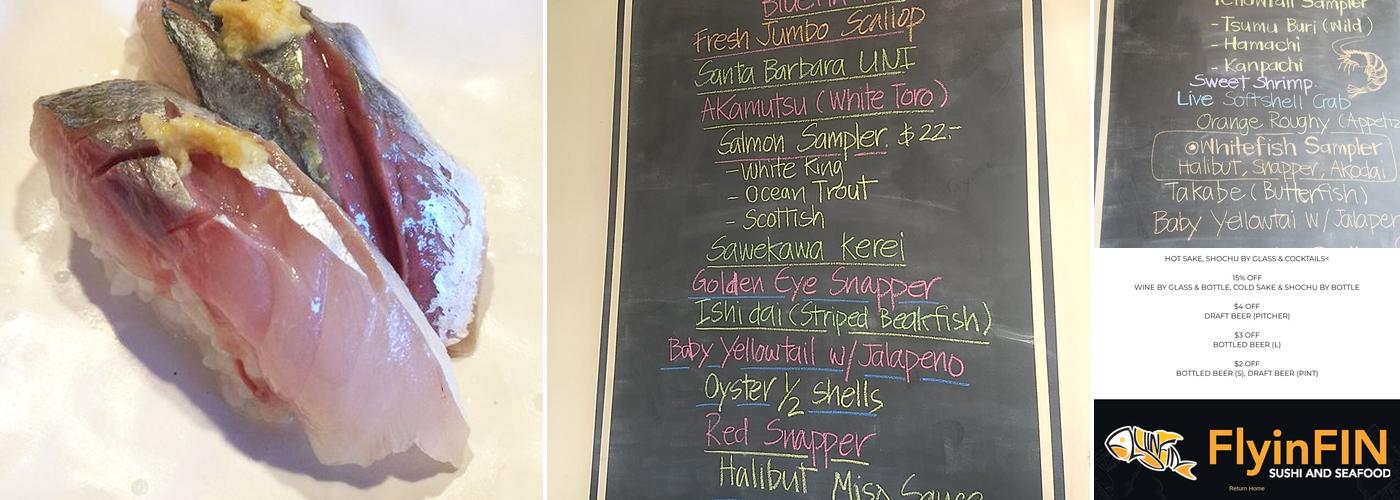 Fresh Jumbo Scallop
Santa Barbara UNI
AKamutsu (White Toro)
Salmon Sampler. $22-
-White King
- Ocean Trout
- Scottish
Sawekawa Kerei
Golden Eye Snapper
Ishidai (Striped Beakfish)
Baby Yellowtail w/Jalapeno
Oyster 1/2 shells
Red Snapper
Halibut Miso Sauce
Yellowtail Sampler
-Tsumu Buri (Wild)
- Hamachi
- Kanpachi
Sweet Shrimp
Live Softshell Crab
Orange Roughy (Appeti
Whitefish Sampler
Halibut, Snapper, Akodai
Takabe (Butterfish)
Baby Yellowtai w/Jalape
HOT SAKE, SHOCHU BY GLASS & COCKTAILS<
15% OFF
WINE BY GLASS & BOTTLE, COLD SAKE & SHOCHU BY BOTTLE
$4 OFF
DRAFT BEER (PITCHER)
$3 OFF
BOTTLED BEER (L)
$2 OFF
BOTTLED BEER (S), DRAFT BEER (PINT)
FlyinFIN
SUSHI AND SEAFOOD
Return Home